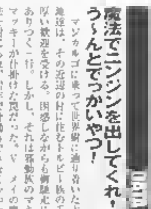 魔法でニンジンを出してくれ!
う〜んとでっかいやつ!
マジカルゴに乗って世界樹に辿り着いた
達は、その近辺の村に住むトルピー族の
厚い歓迎を受ける。困惑しながらも郷馳走に
ありつく一行。しかし、それは邪動族のマ
マッキーが仕掛けた罠だった。